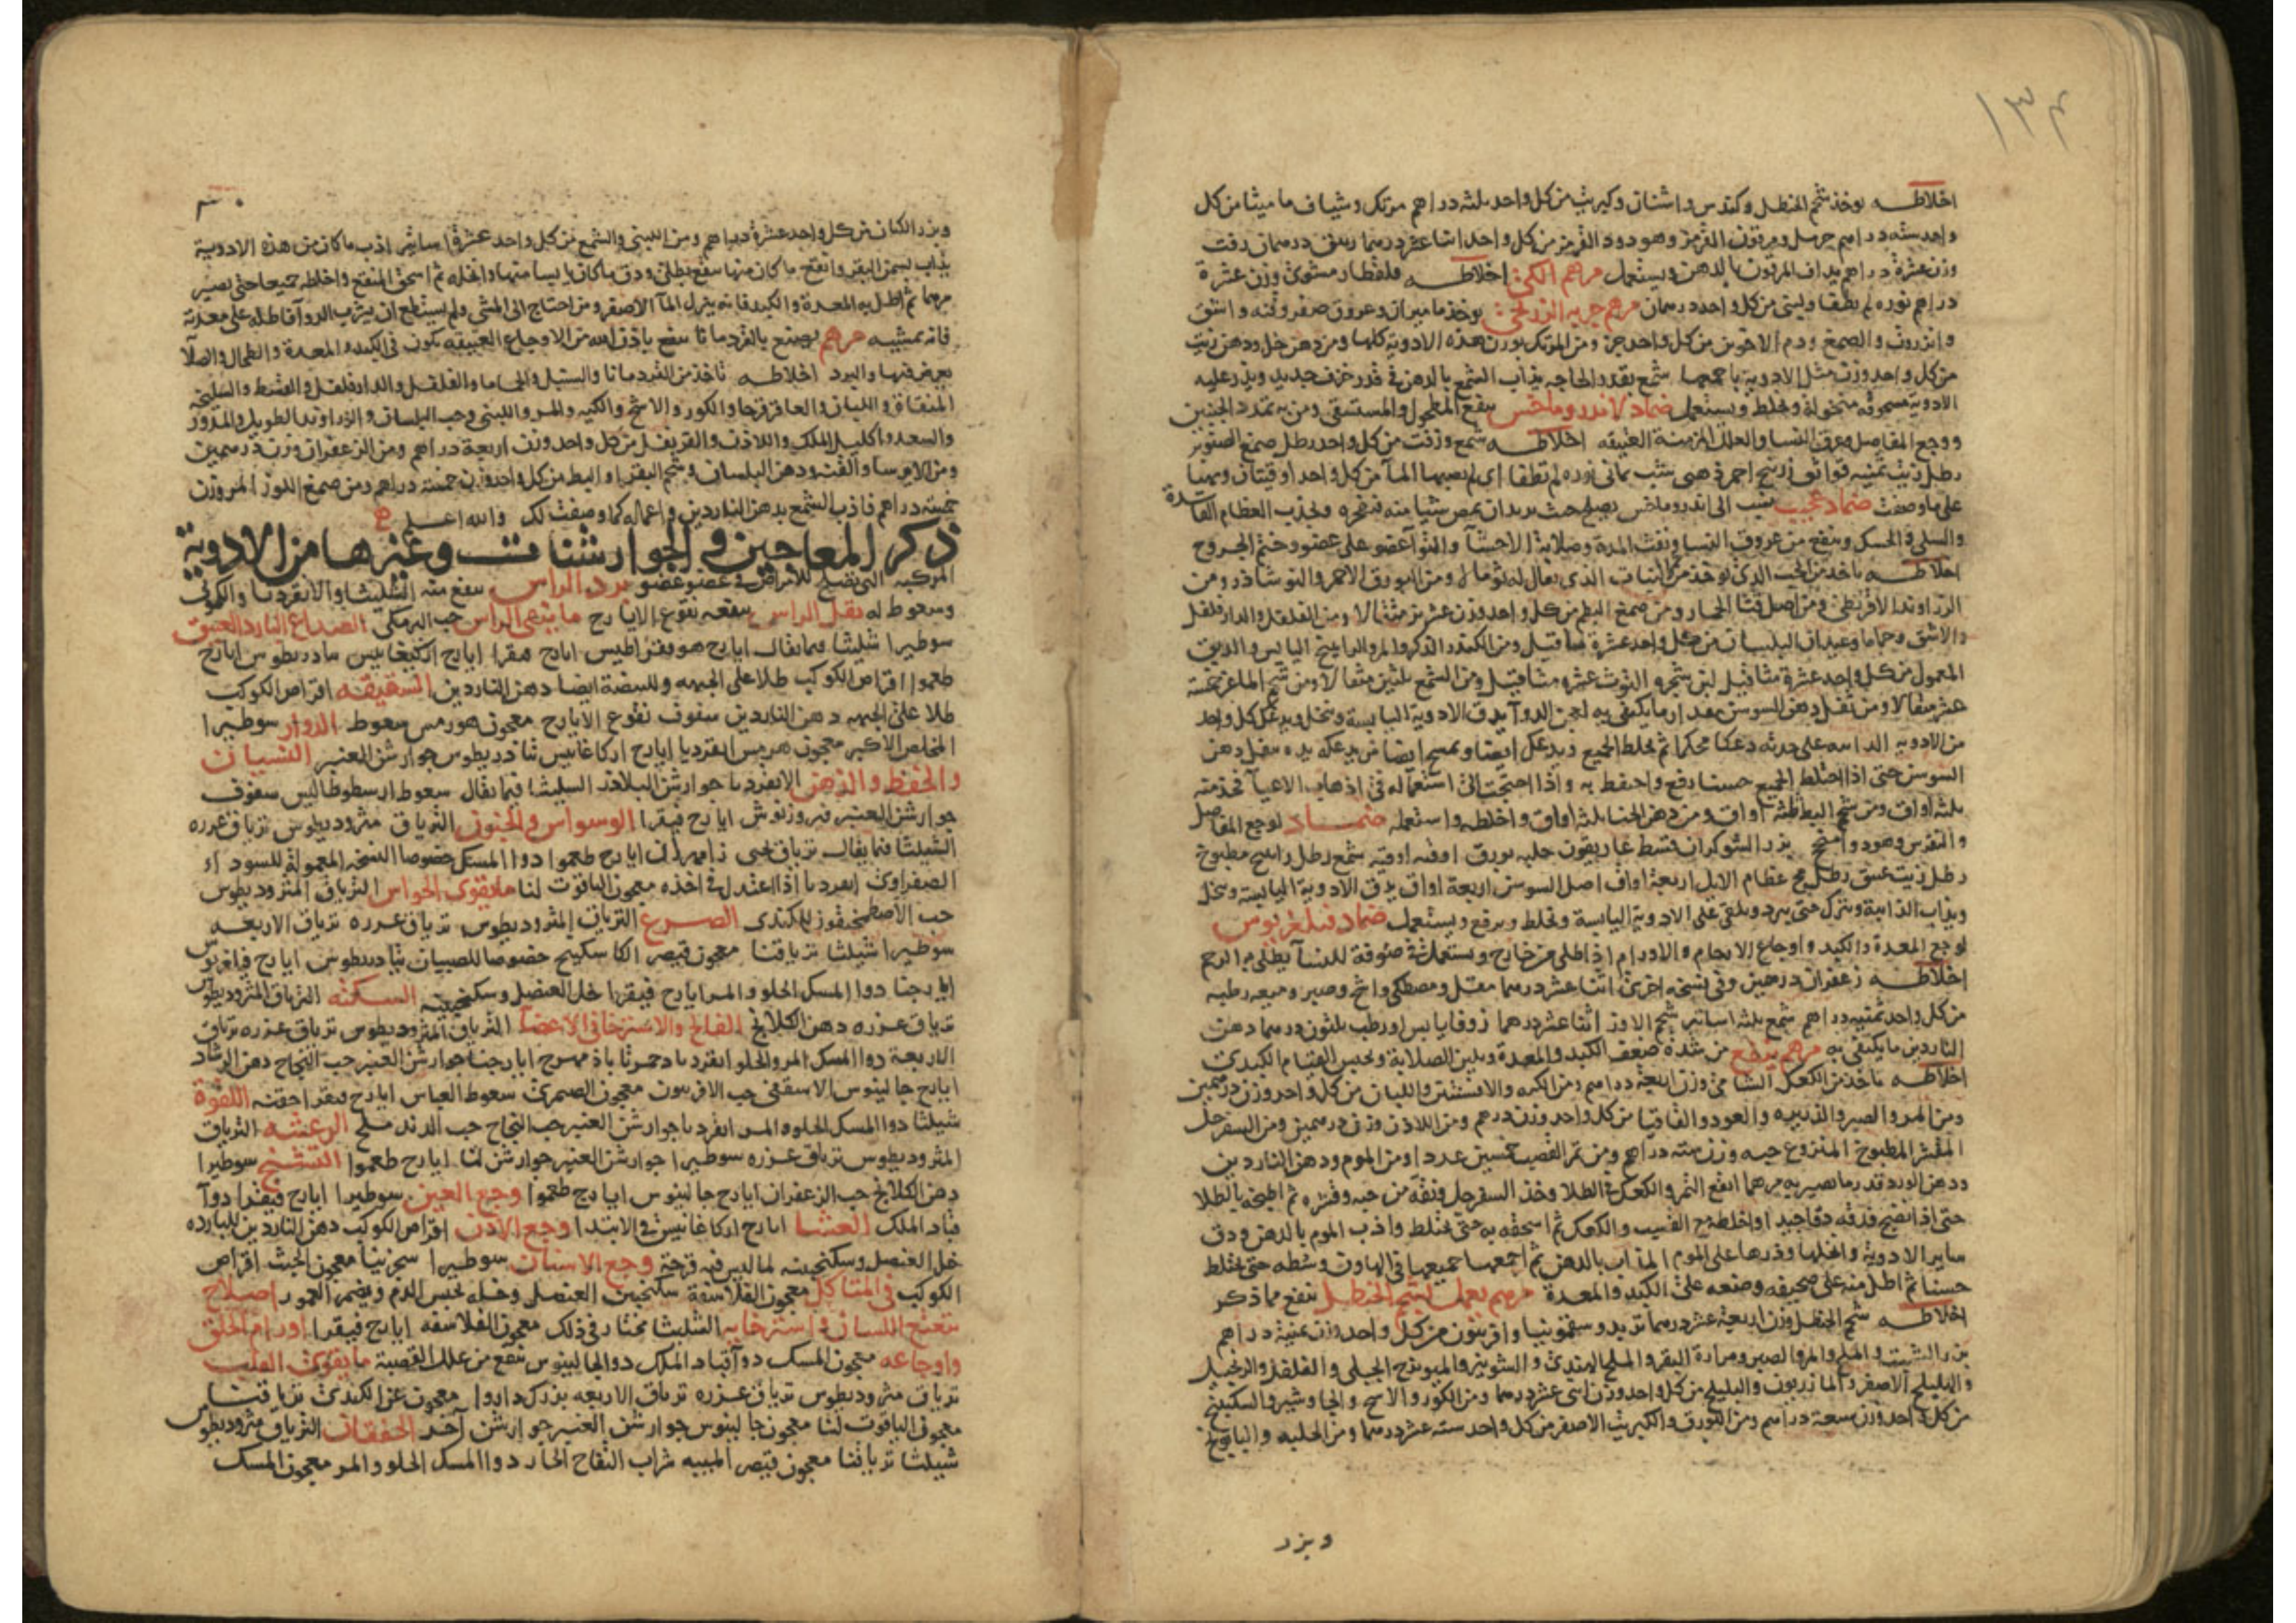 ١٣٤
اخلاطه يوخذ شحم الحنظل وكندس واشنان وكبريت من كل واحد ثلثة دراهم مرتك وشياف ماميثا من كل
واحد ستة دراهم حرمل وقربون القرمز وهو دود القرمز من كل واحد اثنا عشر درهما درهمان زفت
وزن عشرة دراهم يداف بالدهن ويستعمل مرهم الكى اخلاطه قلقطار مشوى وزن عشرة
دراهم نوره لم تطفا من كل واحد درهمان مرهم جربه الزرنخى يوخذ ماميران وعروق صفر وقنه واشق
وانزروت والصمغ ودم الاخوين من كل واحد جز ومن المرتك بوزن هذه الادوية كلها ومن دهن خل ودهن زيت
من كل واحد وزن مثل الادوية باجمعها شمع بقدر الحاجه يذاب الشمع بالدهن فى قدر خزف جديد ويذر عليه
الادوية مسحوقه منخولة ويخلط ويستعمل ضماد لاندروماخس ينفع المطحول والمستسقى ومن به تمدد الجنبين
ووجع المفاصل وعرق النسا والعلل المزمنة العتيقه اخلاطه شمع وزفت من كل واحد رطل صمغ الصنوبر
رطل زيت زرنيخ احمر نوره لم تطفا اى لم يصبها الما من كل واحد اوقيتان
على ما وصفت ضماد عجيب ينسب الى اندروماخس يصلح حيث يريد ان يمص شيا من قعره ويجذب العظام الفاسدة
والسلى والحسك وينفع من عروق النسا ونفث المدة وصلابة الاحشآ والتوآ عضو على عضو وختم الجروح
اخلاطه ياخذ من الحب الذى يوخذ من النبات الذى يقال له ثوماله ومن البورق الاحمر والنوشاذر ومن
الزراوند الاقريطى ومن اصل قثا الحمار ومن صمغ البطم من كل واحد وزن عشرين مثقالا ومن الفلفل والدارفلفل
والاشق وحماما وعيدان البلسان من كل واحد عشرة مثاقيل ومن الكندر الذكر والمر والراتينج اليابس والدبق
المعمول من كل واحد عشرة مثاقيل لبن شجره التوت عشره مثاقيل ومن الشمع ثلثين مثقالا ومن شحم الماعز خمسة
عشر مثقالا ومن ثفل دهن السوسن مقدار ما يكتفى به لعجن الدوآ يدق الادوية اليابسة وتنخل ويدعك كل واحد
من الادوية على حدته دعكا محكما ثم يخلط الجميع ويدعك ايضا ويمسح ايضا من يدعكه يده بثفل دهن
السوسن حتى اذا اختلط الجميع حسنا رفع واحتفظ به واذا احتجت الى استعماله فى اذهاب الاعيآ فخذ منه
ثلثة اواق ومن شحم البط ثلثة اواق ومن دهن الحنا ثلثة اواق واخلطه واستعمله ضماد لوجع المفاصل
والنقرس وهو دوا منجح بزر الشوكران قسط غاريقون حلبه بورق اوقيه اوقيه شمع رطل راتينج مطبوخ
رطل زيت عتيق رطل مخ عظام الايل اربعة اواق اصل السوسن اربعة اواق يدق الادوية اليابسة وتنخل
ويذاب الذائبة ويترك حتى يبرد ويلقى على الادوية اليابسة ويخلط ويرفع ويستعمل ضماد فيلغريوس
لوجع المعدة والكبد واوجاع الارحام والاورام اذا طلى من خارج ويستعمل فى صوفة للنسآ يطلى به الرحم
اخلاطه زعفران درهمين وفى نسخه اخرى اثنا عشر درهما مقل ومصطكى واشج وصبر وميعه رطبه
من كل واحد ثمنيه دراهم شمع ثلثه اساتير شحم الاوز اثنا عشر درهما زوفا يابس او رطب ثلثون درهما دهن
الناردين ما يكتفى به مرهم ينفع من شدة ضعف الكبد والمعدة ويلين الصلابة ويحبس القيام الكبدى
اخلاطه ياخذ من الكعك الشامى وزن اربعة دراهم ومن الكيه والافسنتين واللبان من كل واحد وزن درهمين
ومن المر والصبر والذريره والعود والقاقيا من كل واحد وزن درهم ومن اللاذن وزن درهمين ومن السفرجل
المقشر المطبوخ المنزوع حبه وزن مئة دراهم ومن تمر القصب خمسين عددا ومن الموم ودهن الناردين
ودهن الورد قدر ما يصير به مرهما انقع التمر والكعك فى الطلا وخذ السفرجل ونقه من حبه وقشره ثم اطبخه بالطلا
حتى اذا نضج فدقه دقا جيدا واخلطه مع القسب والكعك ثم اسحقه به حتى يختلط واذب الموم بالدهن ودق
ساير الادوية وانخلها وذرها على الموم المذاب بالدهن ثم اجمعها جميعها فى الهاون وسطه حتى يختلط
حسنا ثم اطل منه على صحيفه وضعه على الكبد والمعدة مرهم يعمل بشحم الحنظل ينفع مما ذكر
اخلاطه شحم الحنظل وزن اربعة عشر درهما تربد وسقمونيا وافربيون من كل واحد وزن ثمنية دراهم
بزر الشبت والملح والمر والصبر ومرارة البقر والملح الهندى والشونيز والميويزج الجبلى والفلفل والزنجبيل
والهليلج الاصفر والمازريون والبليلج من كل واحد وزن اثنى عشر درهما ومن الكور والاشج والجاوشير والسكبينج
من كل واحد وزن سبعة دراهم ومن البورق والكبريت الاصفر من كل واحد ستة عشر درهما ومن الحلبه والبابونج
وبزر
وبزر الكتان من كل واحد عشرة دراهم ومن اللبنى والشمع من كل واحد عشرة اساتير اذب ما كان من هذه الادوية
يذاب بسمن البقر وانقع ما كان منها ينقع بطلى ودق ما كان يابسا منها وانخله ثم اسحق المنقع واخلطه جميعا حتى يصير
مرهما ثم اطل به المعدة والكبد فانه ينزل المآ الاصفر ومن احتاج الى المشى ولم يستطع ان يشرب الدوآ فاطله على معدته
فانه يمشيه مرهم يصنع بالقردمانا ينفع باذن الله من الاوجاع العتيقه تكون فى الكبد والمعدة والطحال والصلآ
يعرض فيها والبرد اخلاطه تاخذ من القردمانا والسنبل والحماما والفلفل والدارفلفل والقسط والسليخه
المنقاة واللبان والعاقرقرحا والكور والاشج والكيه والمر واللبنى وحب البلسان والزراوند الطويل والمدور
والسعد واكليل الملك واللاذن والقرنفل من كل واحد وزن اربعة دراهم ومن الزعفران وزن درهمين
ومن الايرسا والقنه ودهن البلسان وشحم البقر والبط من كل واحد وزن خمسة دراهم ومن صمغ اللوز المر وزن
خمسة دراهم فاذب الشمع بدهن الناردين واعماله كما وصفت لك والله اعلم
ذكر المعاجين والجوارشنات وغيرها من الادوية
المركبه التى تصلح للامراض فى عضو عضو برد الراس ينفع منه الشليثا والانقرديا والكمونى
وسعوط له ثقل الراس ينفعه نقوع الايارج ما ينقى الراس حب البرمكى الصداع البارد العتيق
سوطيرا شليثا فيما يقال ايارج هوفقراطيس ايارج فيقرا ايارج اركيغانيس ثيادريطوس ايارج
طعموا اقراص الكوكب طلا على الجبهه وللبيضة ايضا دهن الناردين الشقيقه اقراص الكوكب
طلا على الجبهه دهن الناردين سفوف نقوع الايارج معجون هورمس سعوط الدوار سوطيرا
المخلص الاكبر معجون هرمس انقرديا ايارج اركاغانيس ثيادريطوس جوارشن العنبر النسيان
والحفظ والذهن الانقرديا جوارشن البلاذر الشليثا فيما يقال سعوط ارسطوطاليس سفوف
جوارشن العنبر فيروزنوش ايارج فيقرا الوسواس والجنون الترياق مثروديطوس ترياق عزره
الشليثا فيما يقال ترياق يحيى زامهران ايارج طعموا دوا المسك خصوصا النسخه المعمولة للسوداء
الصفراوى انقرديا اذا اعتدل فى اخذه معجون الياقوت لنا ما يقوى الحواس الترياق المثروديطوس
حب الاصطمخيقون للكندى الصرع الترياق المثروديطوس ترياق عزره ترياق الاربعه
سوطيرا شليثا ترياقنا معجون قيصر الكاسكبينج خصوصا للصبيان ثيادريطوس ايارج فياغريوس
ايارجنا دوا المسك الحلو والمر ايارج فيقرا خل العنصل وسكنجبينه السكته الترياق المثروديطوس
ترياق عزره دهن الكلكلانج الفالج والاسترخا فى الاعضآ الترياق المثروديطوس ترياق عزره ترياق
الاربعة دوا المسك المر والحلو انقرديا ايارجنا جوارشن العنبر حب النجاح دهن الرشاد
ايارج جالينوس الاسقفى حب الافربيون معجون الصيمرى سعوط العباس ايارج فيقرا حقنه اللقوة
شليثا دوا المسك الحلو والمر انقرديا جوارشن العنبر حب النجاح حب الدند ملح الرعشه الترياق
المثروديطوس ترياق عزره سوطيرا جوارشن العنبر جوارشن لنا ايارج طعموا التشنج سوطيرا
دهن الكلكلانج حب الزعفران ايارج جالينوس ايارج طعموا وجع العين سوطيرا ايارج فيقرا دوآ
قباد الملك العشا ايارج اركاغانيس فى الابتدا وجع الاذن اقراص الكوكب دهن الناردين للبارده
خل العنصل وسكنجبينه لما ليس فيه قرحة وجع الاسنان سوطيرا سجزنيا معجون الخبث اقراص
الكوكب فى المتاكل معجون الفلاسفة سكنجبين العنصل وخله يحبس الدم ويضمر العمور اصلاح
تعتع اللسان واسترخايه الشليثا مختار فى ذلك معجون الفلاسفه ايارج فيقرا اورام الحلق
واوجاعه معجون المسك دوآ قباد الملك دوا جالينوس ينفع من علل القصبة ما يقوى القلب
ترياق مثروديطوس ترياق عزره ترياق الاربعه بزرك دارو معجون عن الكندى ترياقنا
معجون الياقوت لنا معجون جالينوس جوارشن العنبر جوارشن آخر الخفقان الترياق مثروديطوس
شليثا ترياقنا معجون قيصر الميبه شراب التفاح الحار دوا المسك الحلو والمر معجون المسك